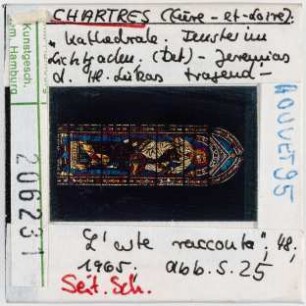 CHARTRES (Eure-et-Loire):
Kathedrale. Fenster im
Lichtgaden. (Det) - Jeremias
d. Hl. Lukas tragend -
Kunstgesch.
m. Hamburg
206231
HOUVET 95
L'arte racconta", 48,
1965. abb. S. 25
Seit. Sch.